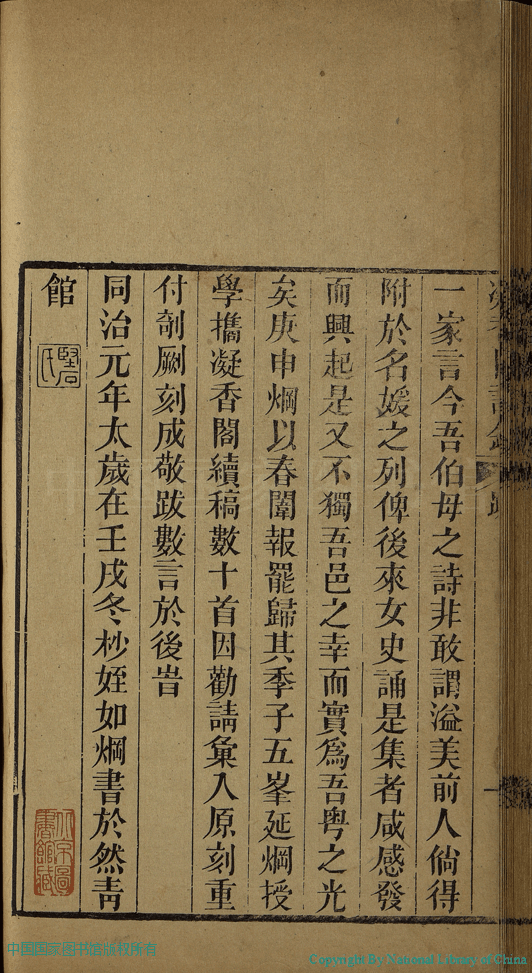 一家言今吾伯母之詩非敢謂溢美前人倘得
附於名媛之列俾後來女史誦是集者咸感發
而興起是又不獨吾邑之幸而實為吾粵之光
矣庚申烱以春闈報罷歸其季子五峯延烱授
學攜凝香閣續稿數十首因勸請彙入原刻重
付剞劂刻成敬跋數言於後旹
同治元年太歲在壬戌冬杪姪如烱書於然青
館
北京圖書館藏
中国国家图书馆版权所有
Copyright By National Library of China